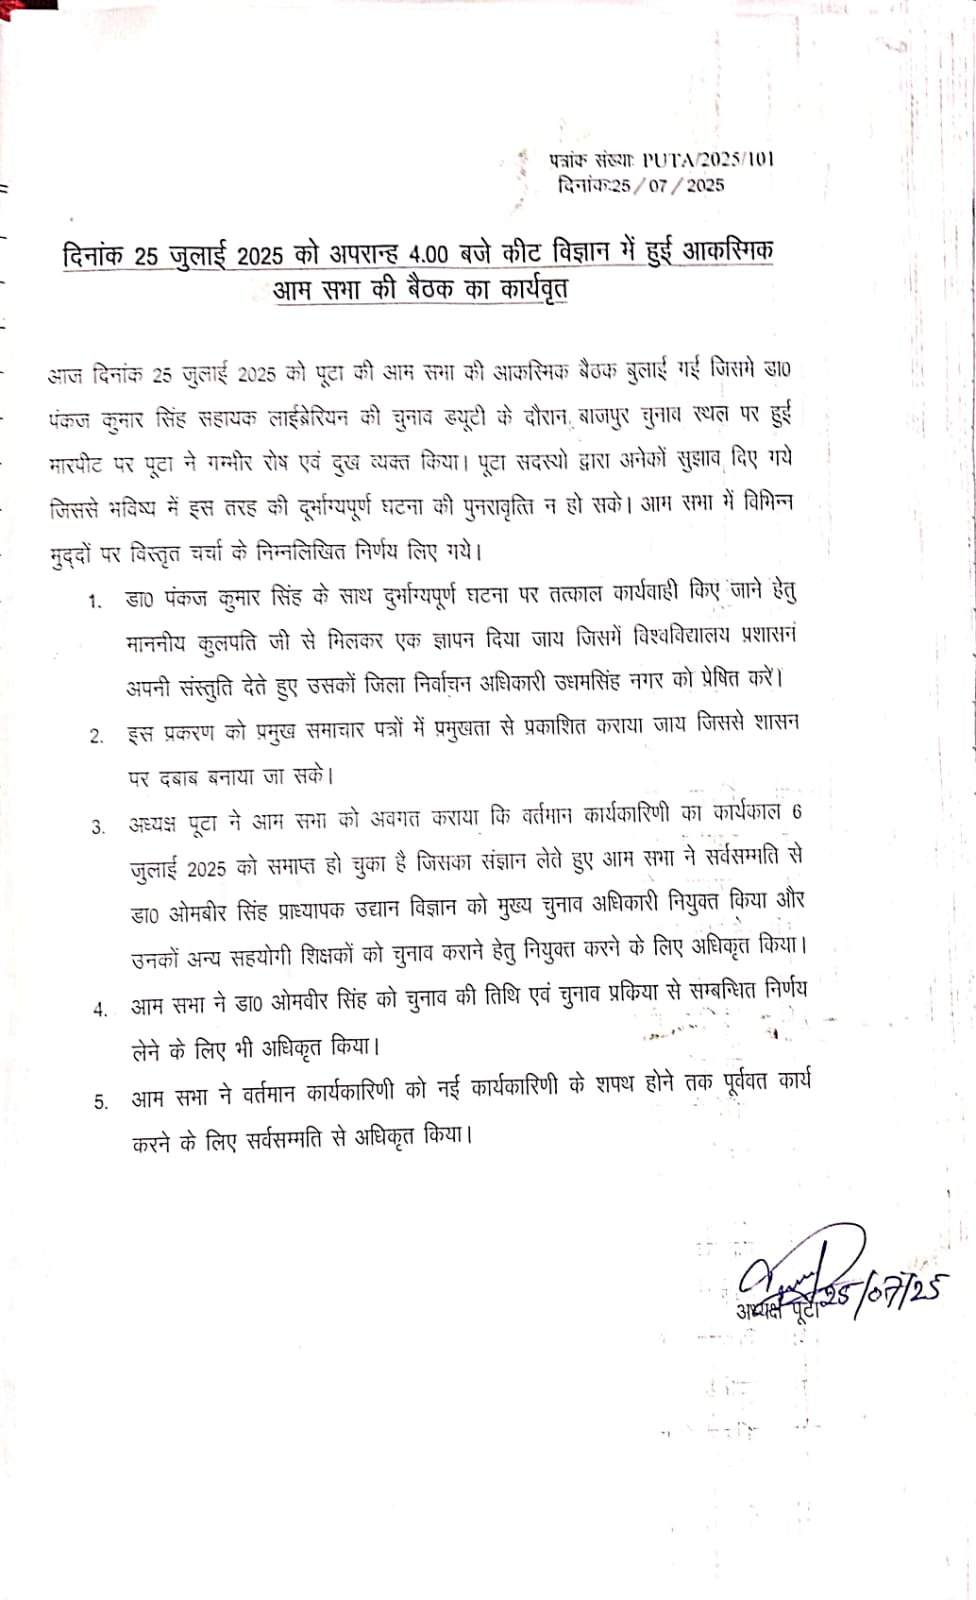 पत्रांक संख्याः PUTA/2025/101
दिनांक:25/07/2025
दिनांक 25 जुलाई 2025 को अपरान्ह 4.00 बजे कीट विज्ञान में हुई आकस्मिक
आम सभा की बैठक का कार्यवृत
आज दिनांक 25 जुलाई 2025 को पूटा की आम सभा की आकस्मिक बैठक बुलाई गई जिसमे डा0
पंकज कुमार सिंह सहायक लाईब्रेरियन की चुनाव डयूटी के दौरान, बाजपुर चुनाव स्थल पर हुई
मारपीट पर पूटा ने गम्भीर रोष एवं दुख व्यक्त किया। पूटा सदस्यो द्वारा अनेकों सुझाव दिए गये
जिससे भविष्य में इस तरह की दूर्भाग्यपूर्ण घटना की पुनरावृत्ति न हो सके। आम सभा में विभिन्न
मुद्दों पर विस्तृत चर्चा के निम्नलिखित निर्णय लिए गये।
1. डा0 पंकज कुमार सिंह के साथ दुर्भाग्यपूर्ण घटना पर तत्काल कार्यवाही किए जाने हेतु
माननीय कुलपति जी से मिलकर एक ज्ञापन दिया जाय जिसमें विश्वविद्यालय प्रशासन
अपनी संस्तुति देते हुए उसकों जिला निर्वाचन अधिकारी उधमसिंह नगर को प्रेषित करें।
2. इस प्रकरण को प्रमुख समाचार पत्रों में प्रमुखता से प्रकाशित कराया जाय जिससे शासन
पर दबाब बनाया जा सके।
3. अध्यक्ष पूटा ने आम सभा को अवगत कराया कि वर्तमान कार्यकारिणी का कार्यकाल 6
जुलाई 2025 को समाप्त हो चुका है जिसका संज्ञान लेते हुए आम सभा ने सर्वसम्मति से
डा0 ओमबीर सिंह प्राध्यापक उद्यान विज्ञान को मुख्य चुनाव अधिकारी नियुक्त किया और
उनकों अन्य सहयोगी शिक्षकों को चुनाव कराने हेतु नियुक्त करने के लिए अधिकृत किया।
4. आम सभा ने डा0 ओमवीर सिंह को चुनाव की तिथि एवं चुनाव प्रकिया से सम्बन्धित निर्णय
लेने के लिए भी अधिकृत किया।
5. आम सभा ने वर्तमान कार्यकारिणी को नई कार्यकारिणी के शपथ होने तक पूर्ववत कार्य
करने के लिए सर्वसम्मति से अधिकृत किया।
25/07/25
अध्यक्ष पूटा